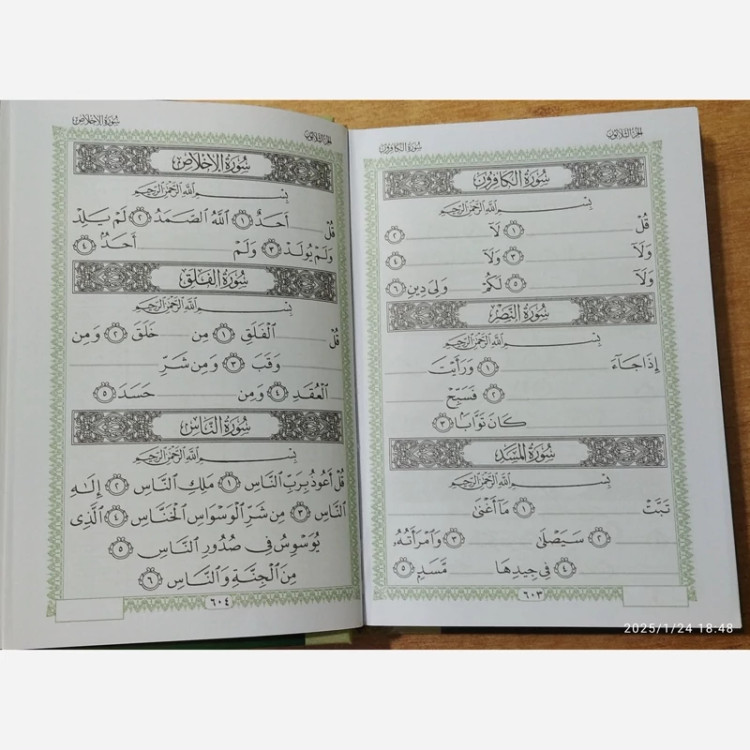 الجزء الثلاثون
سورة الكافرون
سُورَةُ الكَافِرُونَ
بِسْمِ اللَّهِ الرَّحْمَٰنِ الرَّحِيمِ
قُلْ ١ لَآ ٢
وَلَآ ٣ وَلَآ ٤
وَلَآ ٥ لَكُمْ وَلِىَ دِينِ ٦
سُورَةُ النَّصْرِ
بِسْمِ اللَّهِ الرَّحْمَٰنِ الرَّحِيمِ
إِذَا جَآءَ ١ وَرَأَيْتَ
٢ فَسَبِّحْ
كَانَ تَوَّابَۢا ٣
سُورَةُ المَسَدِ
بِسْمِ اللَّهِ الرَّحْمَٰنِ الرَّحِيمِ
تَبَّتْ ١ مَآ أَغْنَىٰ
٢ سَيَصْلَىٰ ٣ وَٱمْرَأَتُهُۥ
٤ فِى جِيدِهَا مَّسَدٍۭ ٥
٦٠٣
سورة الإخلاص
الجزء الثلاثون
سُورَةُ الإِخْلَاصِ
بِسْمِ اللَّهِ الرَّحْمَٰنِ الرَّحِيمِ
قُلْ أَحَدٌ ١ ٱللَّهُ ٱلصَّمَدُ ٢ لَمْ يَلِدْ
وَلَمْ يُولَدْ ٣ وَلَمْ أَحَدٌۢ ٤
سُورَةُ الفَلَقِ
بِسْمِ اللَّهِ الرَّحْمَٰنِ الرَّحِيمِ
قُلْ ٱلْفَلَقِ ١ مِن خَلَقَ ٢ وَمِن
وَقَبَ ٣ وَمِن شَرِّ
ٱلْعُقَدِ ٤ وَمِن حَسَدَ ٥
سُورَةُ النَّاسِ
بِسْمِ اللَّهِ الرَّحْمَٰنِ الرَّحِيمِ
قُلْ أَعُوذُ بِرَبِّ ٱلنَّاسِ ١ مَلِكِ ٱلنَّاسِ ٢ إِلَٰهِ
ٱلنَّاسِ ٣ مِن شَرِّ ٱلْوَسْوَاسِ ٱلْخَنَّاسِ ٤ ٱلَّذِى
يُوَسْوِسُ فِى صُدُورِ ٱلنَّاسِ ٥
مِنَ ٱلْجِنَّةِ وَٱلنَّاسِ ٦
٦٠٤
2025/1/24 18:48